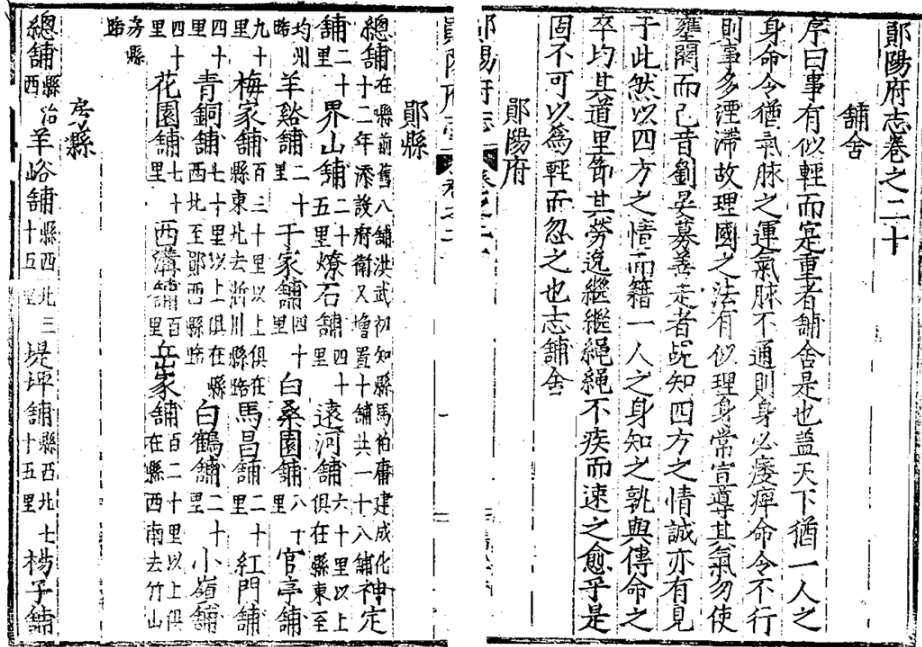 鄖陽府志卷之二十
舖舍
序曰事有似輕而寔重者舖舍是也盖天下猶一人之
身命令猶氣脉之運氣脉不通則身必痿痺命令不行
則事多湮滯故理國之法有似理身常宣導其氣勿使
壅閼而已昔劉晏募善走者覘知四方之情誠亦有見
于此然以四方之情而籍一人之身知之孰與傳命之
卒均其道里節其勞逸繼繼繩繩不疾而速之愈乎是
固不可以爲輕而忽之也志舖舍
鄖陽府
鄖縣
總舖在縣前舊八舖洪武初知縣馬伯庸建成化十二年添設府衛又增置十舖共一十八舖神定
舖二十里界山舖二十五里燎石舖四十里遠河舖六十里以上俱在縣東至
均州路羊谿舖二十里干家舖四十里白桑園舖八十里官亭舖
九十里梅家舖百三十里以上俱在縣東北去淅川縣路馬昌舖二十里紅門舖
四十里青銅舖七十里以上俱在縣西北至鄖西縣路白鶴舖二十里小嶺舖
四十里花園舖七十里西溝舖百里岳家舖百二十里以上俱在縣西南去竹山
房縣路
房縣
總舖縣治西羊峪舖縣西北三十五里堤坪舖縣西北七十五里楊子舖